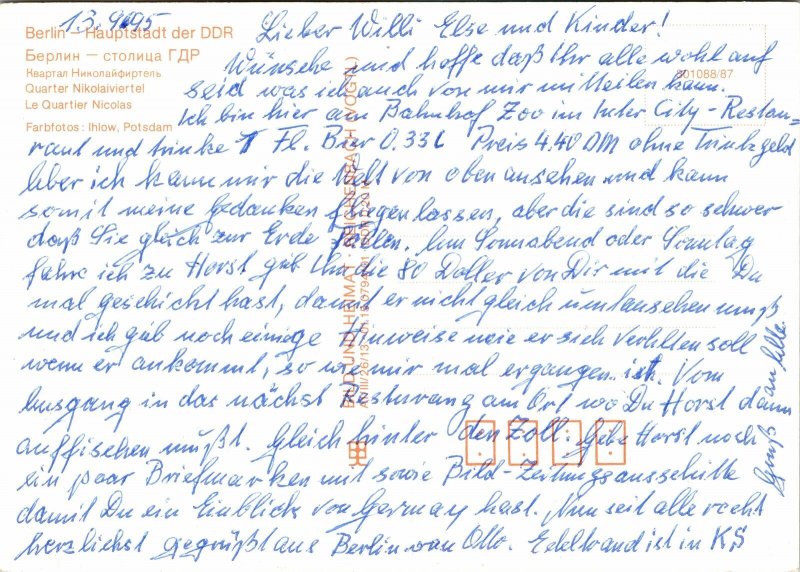 13.9.95
Berlin – Hauptstadt der DDR
Берлин — столица ГДР
Квартал Николайфиртель
Quarter Nikolaiviertel
Le Quartier Nicolas
Farbfotos: Ihlow, Potsdam
Lieber Willi Else und Kinder!
Wünsche und hoffe daß Ihr alle wohl auf
seid was ich auch von mir mitteilen kann.
Ich bin hier am Bahnhof Zoo im Inter City-Restau-
rant und trinke 1 Fl. Bier 0.33L Preis 4.40 DM ohne Trinkgeld
Aber ich kann mir die Welt von oben ansehen und kann
somit meine Gedanken fliegen lassen, aber die sind so schwer
daß Sie gleich zur Erde fallen. Am Sonnabend oder Sonntag
fahre ich zu Horst gub Ihn die 80 Doller von Dir mit die Du
mal geschickt hast, damit er nicht gleich umtauschen muß
und ich gub noch einige Hinweise wie er sich verhlten soll
wenn er ankommt, so wie mir mal ergangen ist. Vom
Ausgang in das nächst Resturang am Ort wo Du Horst dann
auffischen mußt. Gleich hinter den Zoll. Gebe Horst noch
ein paar Briefmarken mit sowie Bild-Zeitungsausschitte
damit Du ein Einblick von Germany hast. Nun seit alle recht
herzlichst gegrüßt aus Berlin von Otto. Edeltraud ist in KS
Gruß an alle
BILD UND HEIMAT REICHENBACH (VOGTL)
301088/87